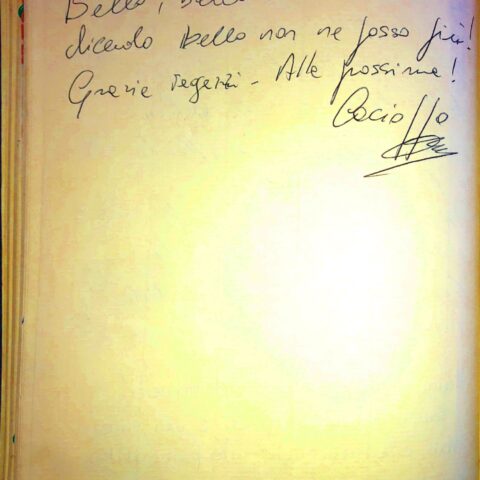 Bello, bello
dicendo bello non ne posso più!
Grazie ragazzi - Alla prossima!